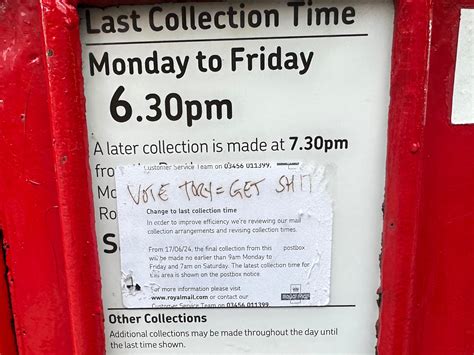 Last Collection Time
Monday to Friday
6.30pm
A later collection is made at 7.30pm
from the
Customer Service Team on 03456 011399.
VOTE TORY = GET SHIT
Change to last collection time
In order to improve efficiency we're reviewing our mail
collection arrangements and revising collection times.
From 17/06/24, the final collection from this postbox
will be made no earlier than 9am Monday to
Friday and 7am on Saturday. The latest collection time for
area is shown on the postbox notice.
For more information please visit
www.royalmail.com or contact our
Customer Service Team on 03456 011399
Royal Mail
Other Collections
Additional collections may be made throughout the day until
the last time shown.